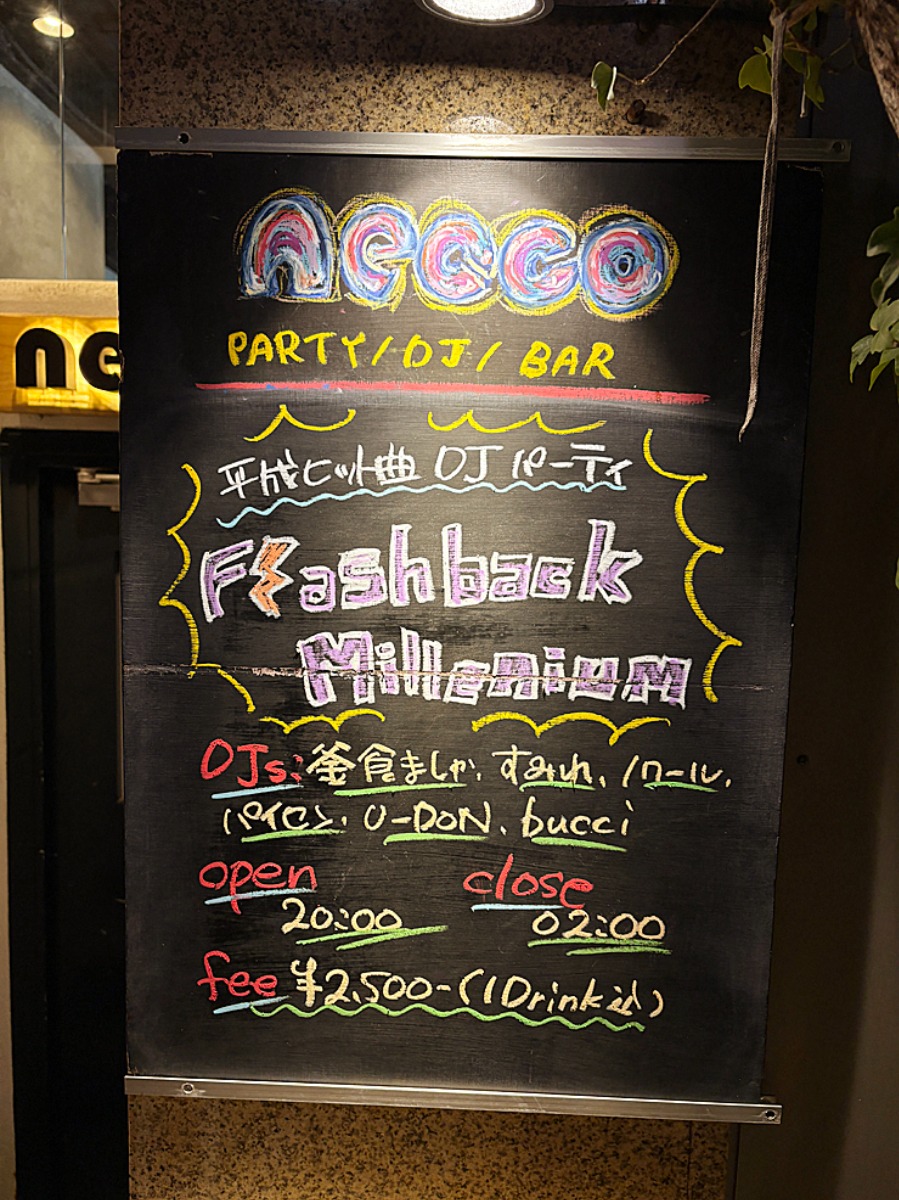 necco
PARTY/DJ/BAR
nc
平成ヒット曲 DJ パーティ
Flashback
Millenium
DJs: 釜食ましゃ、すみれ、ノワール、
パイセン、U-DON、bucci
open close
20:00 02:00
fee ¥2,500-(1Drink込)